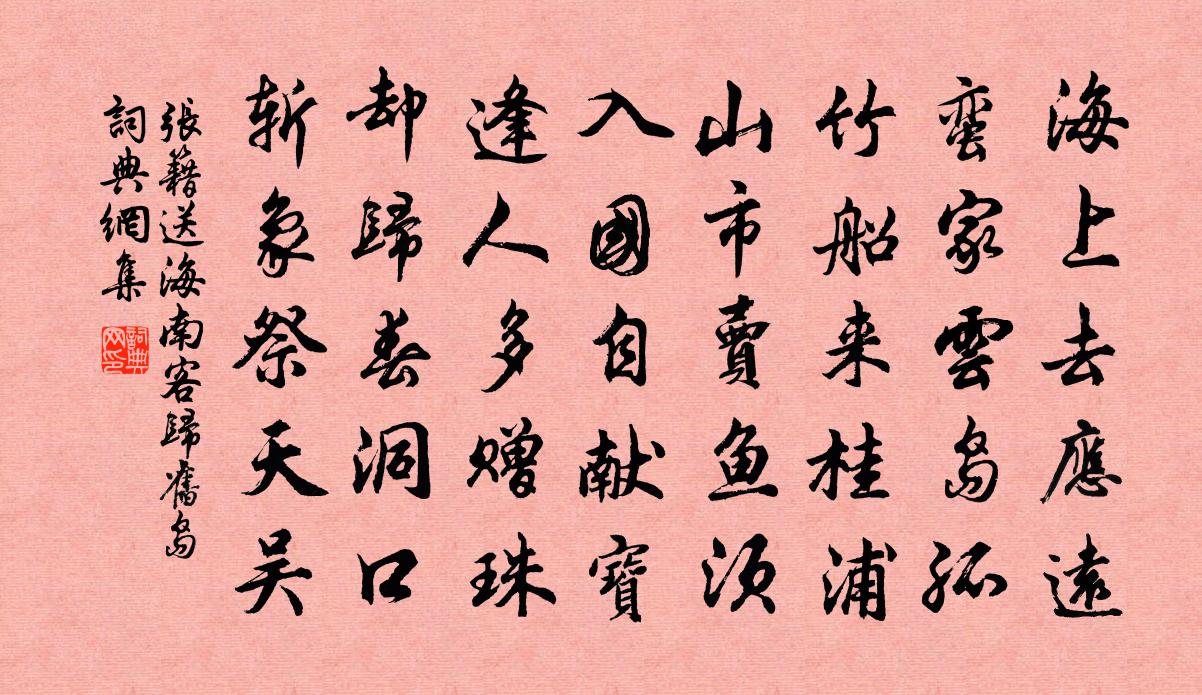 海上去應遠
蛮家雲島孤
竹船来桂浦
山市賣魚须
入國自献寶
逢人多赠珠
却歸春洞口
斬象祭天吴
張籍送海南客歸舊島
詞典網集
詞典网印